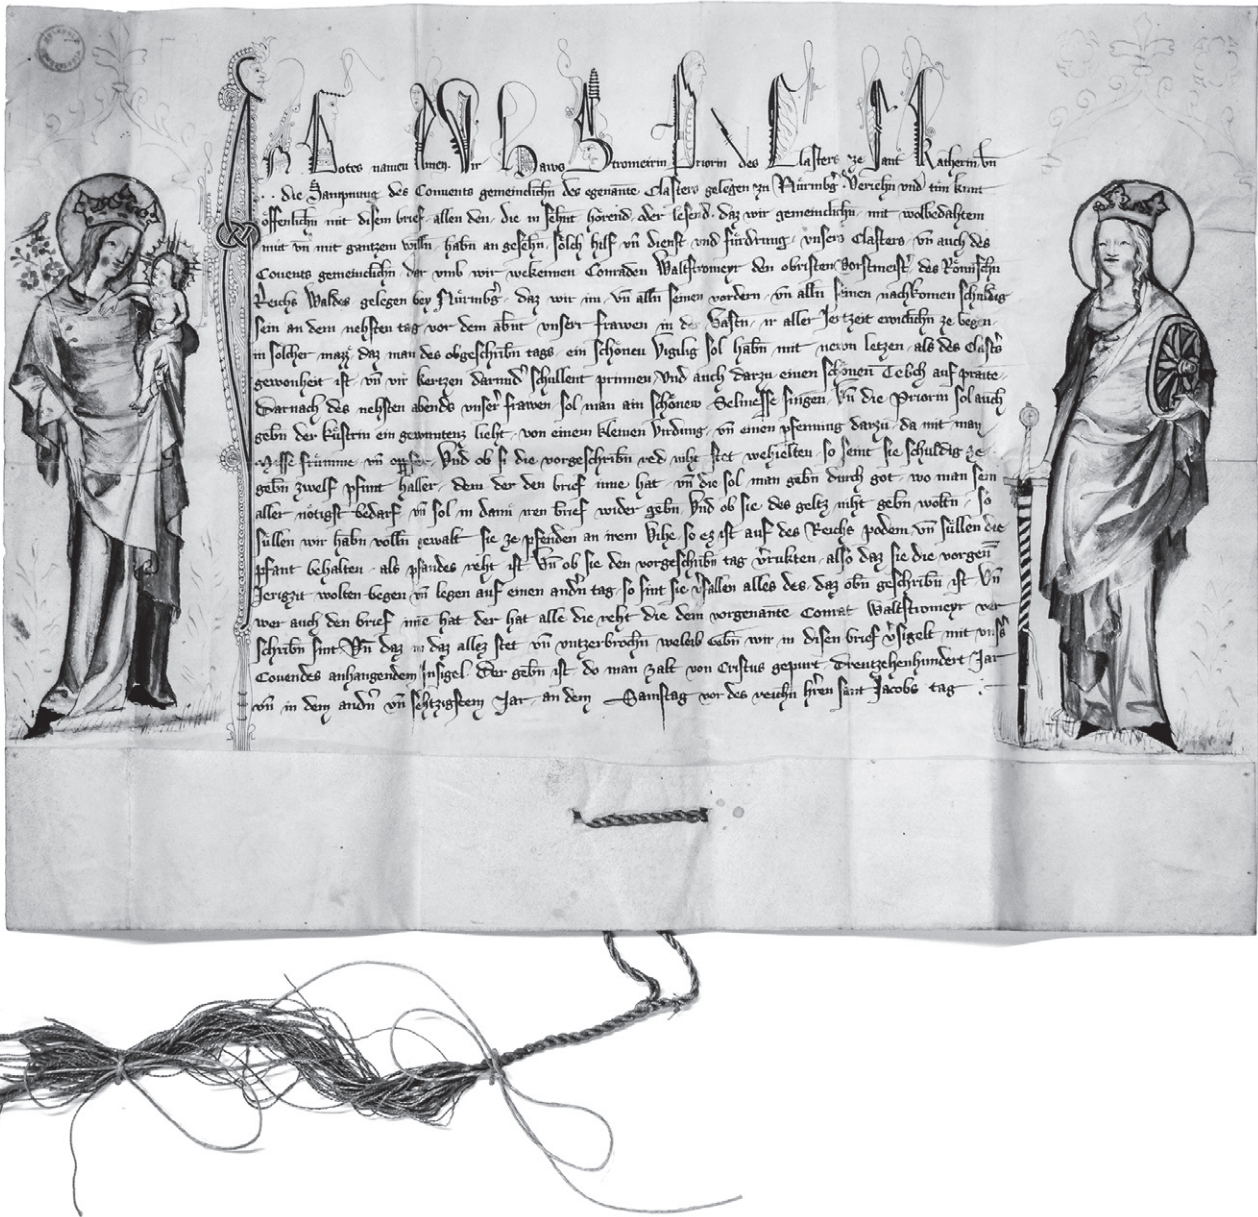 In Gotes namen Amen. Wir Haws Stromeirin Priorin des Closters ze sant Katherin vn̄
die Sampnung des Conuents gemeinclichn̄ des egenante Closters gelegen zu Nu̍rmbg̍ Veriehn vnd tun kunt
offenlichn̄ mit disem brief allen den die in sehnt hörend oder lesend daz wir gemeinclichn̄ mit wolbedahtem
mut vn̄ mit gantzem willn̄ habn̄ an gesehn̄ solch hilf vn̄ dienst vnd fu̍rdrung vnsers Closters vn̄ auch des
Couents gemeinclichn̄ dar vmb wir bekennen Conraden Waltstromeyr den obristen vorstmeist̍ des Römischn̄
Reichs Waldes gelegen bey Nu̍rmbg̍ daz wir im vn̄ alln̄ seinen vordern vn̄ alln̄ seinen nachkomen schuldig
sein an dem nehsten tag vor dem abnt vnserr frawen in der Vastn̄ ir aller Jertzeit ewiclichn̄ ze begen
in solcher mazz daz man des obgeschribn̄ tags ein schönen Vigilig sol habn̄ mit newn letzen als des Closts̍
gewonheit ist vn̄ vir kertzen darunder schullent prinnen Vnd auch darzu einen schönen Tebch auf praite
Darnach des nehsten abends vnser̍ frawen sol man ain schönew Selmesse singen Vn̄ die Priorin sol auch
gebn̄ der Ku̍strin ein gewuntenz lieht von einem kleinen Virdung vn̄ einen pfenning darzu da mit man
Messe fru̍mme vn̄ opffer Vnd ob si die vorgeschribn̄ red niht stet wehielten so seint sie schuldig ze
gebn̄ zwelf pfunt haller dem der den brief inne hat vn̄ die sol man gebn̄ durch got wo man sein
aller nötigst bedarf vn̄ sol in dann iren brief wider gebn̄ Vnd ob sie des geltz niht gebn̄ woltn̄ so
su̍llen wir habn̄ volln̄ gewalt sie ze pfenden an irem Vihe so ez ist auf des Reichs podem vn̄ su̍llen die
pfant behalten als pfandes reht ist Vn̄ ob sie den vorgeschribn̄ tag v̍rukten also daz sie die vorgen̄
Jerigzit wolten begen vn̄ legen auf einen andn̍ tag so sint sie v̍fallen alles des daz obn̄ geschribn̄ ist Vn̄
wer auch den brief inne hat der hat alle die reht die dem vorgenante Conrat Waltstromeyr ver
schribn̄ sint Vn̄ daz in daz allez stet vn̄ vntzerbrochn̄ weleib Gebn̄ wir in disen brief v̍sigelt mit vnss̍
Couendes anhangendem Insigel Der gebn̄ ist do man zalt von Cristus gepurt Dreutzehenhundert Jar
vn̄ in dem andn̍ vn̄ sehtzigstem Jar an dem Samstag vor des reichn̄ hr̍en sant Jacobs tag